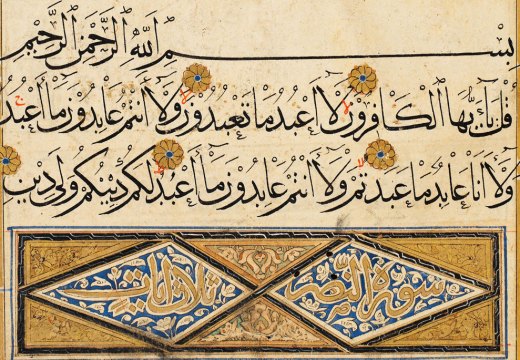 بِسْمِ اللَّهِ الرَّحْمَنِ الرَّحِيمِ
قُلْ يَا أَيُّهَا الْكَافِرُونَ لَا أَعْبُدُ مَا تَعْبُدُونَ وَلَا أَنْتُمْ عَابِدُونَ مَا أَعْبُدُ
وَلَا أَنَا عَابِدٌ مَا عَبَدْتُمْ وَلَا أَنْتُمْ عَابِدُونَ مَا أَعْبُدُ لَكُمْ دِينُكُمْ وَلِيَ دِينِ
سورة النصر ثلاث آيات